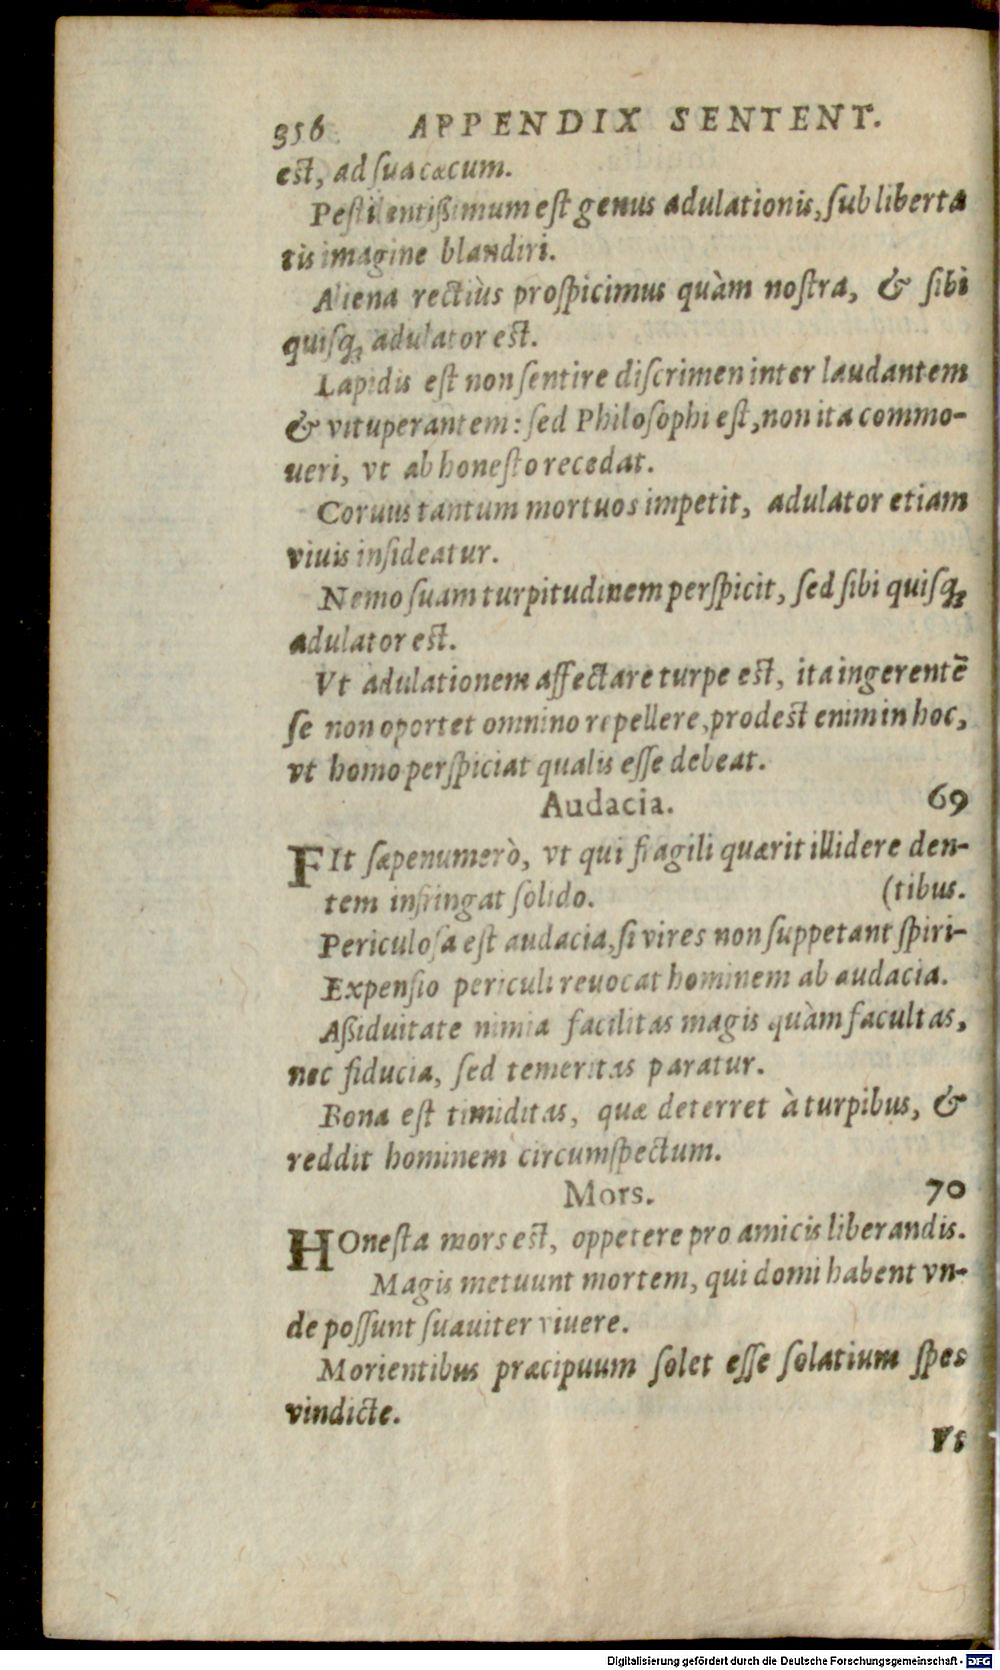 356 APPENDIX SENTENT.
est, ad sua cæcum.
Pestilentißimum est genus adulationis, sub liberta
tis imagine blandiri.
Aliena rectiùs prospicimus quàm nostra, & sibi
quisq; adulator est.
Lapidis est non sentire discrimen inter laudantem
& vituperantem: sed Philosophi est, non ita commo-
ueri, vt ab honesto recedat.
Coruus tantum mortuos impetit, adulator etiam
viuis insideatur.
Nemo suam turpitudinem perspicit, sed sibi quisq;
adulator est.
Vt adulationem affectare turpe est, ita ingerentē
se non oportet omnino repellere, prodest enim in hoc,
vt homo perspiciat qualis esse debeat.
Audacia. 69
FIt sæpenumerò, vt qui fragili quærit illidere den-
tem infringat solido. (tibus.
Periculosa est audacia, si vires non suppetant spiri-
Expensio periculi reuocat hominem ab audacia.
Aßiduitate nimia facilitas magis quàm facultas,
nec fiducia, sed temeritas paratur.
Bona est timiditas, quæ deterret à turpibus, &
reddit hominem circumspectum.
Mors. 70
HOnesta mors est, oppetere pro amicis liberandis.
Magis metuunt mortem, qui domi habent vn-
de possunt suauiter viuere.
Morientibus præcipuum solet esse solatium spes
vindicte.
Vt
Digitalisierung gefördert durch die Deutsche Forschungsgemeinschaft - DFG